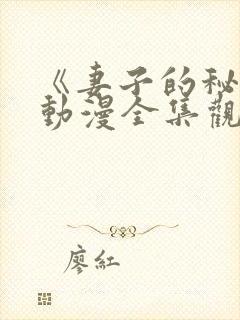 《妻子的秘
動漫全集觀
廖紅